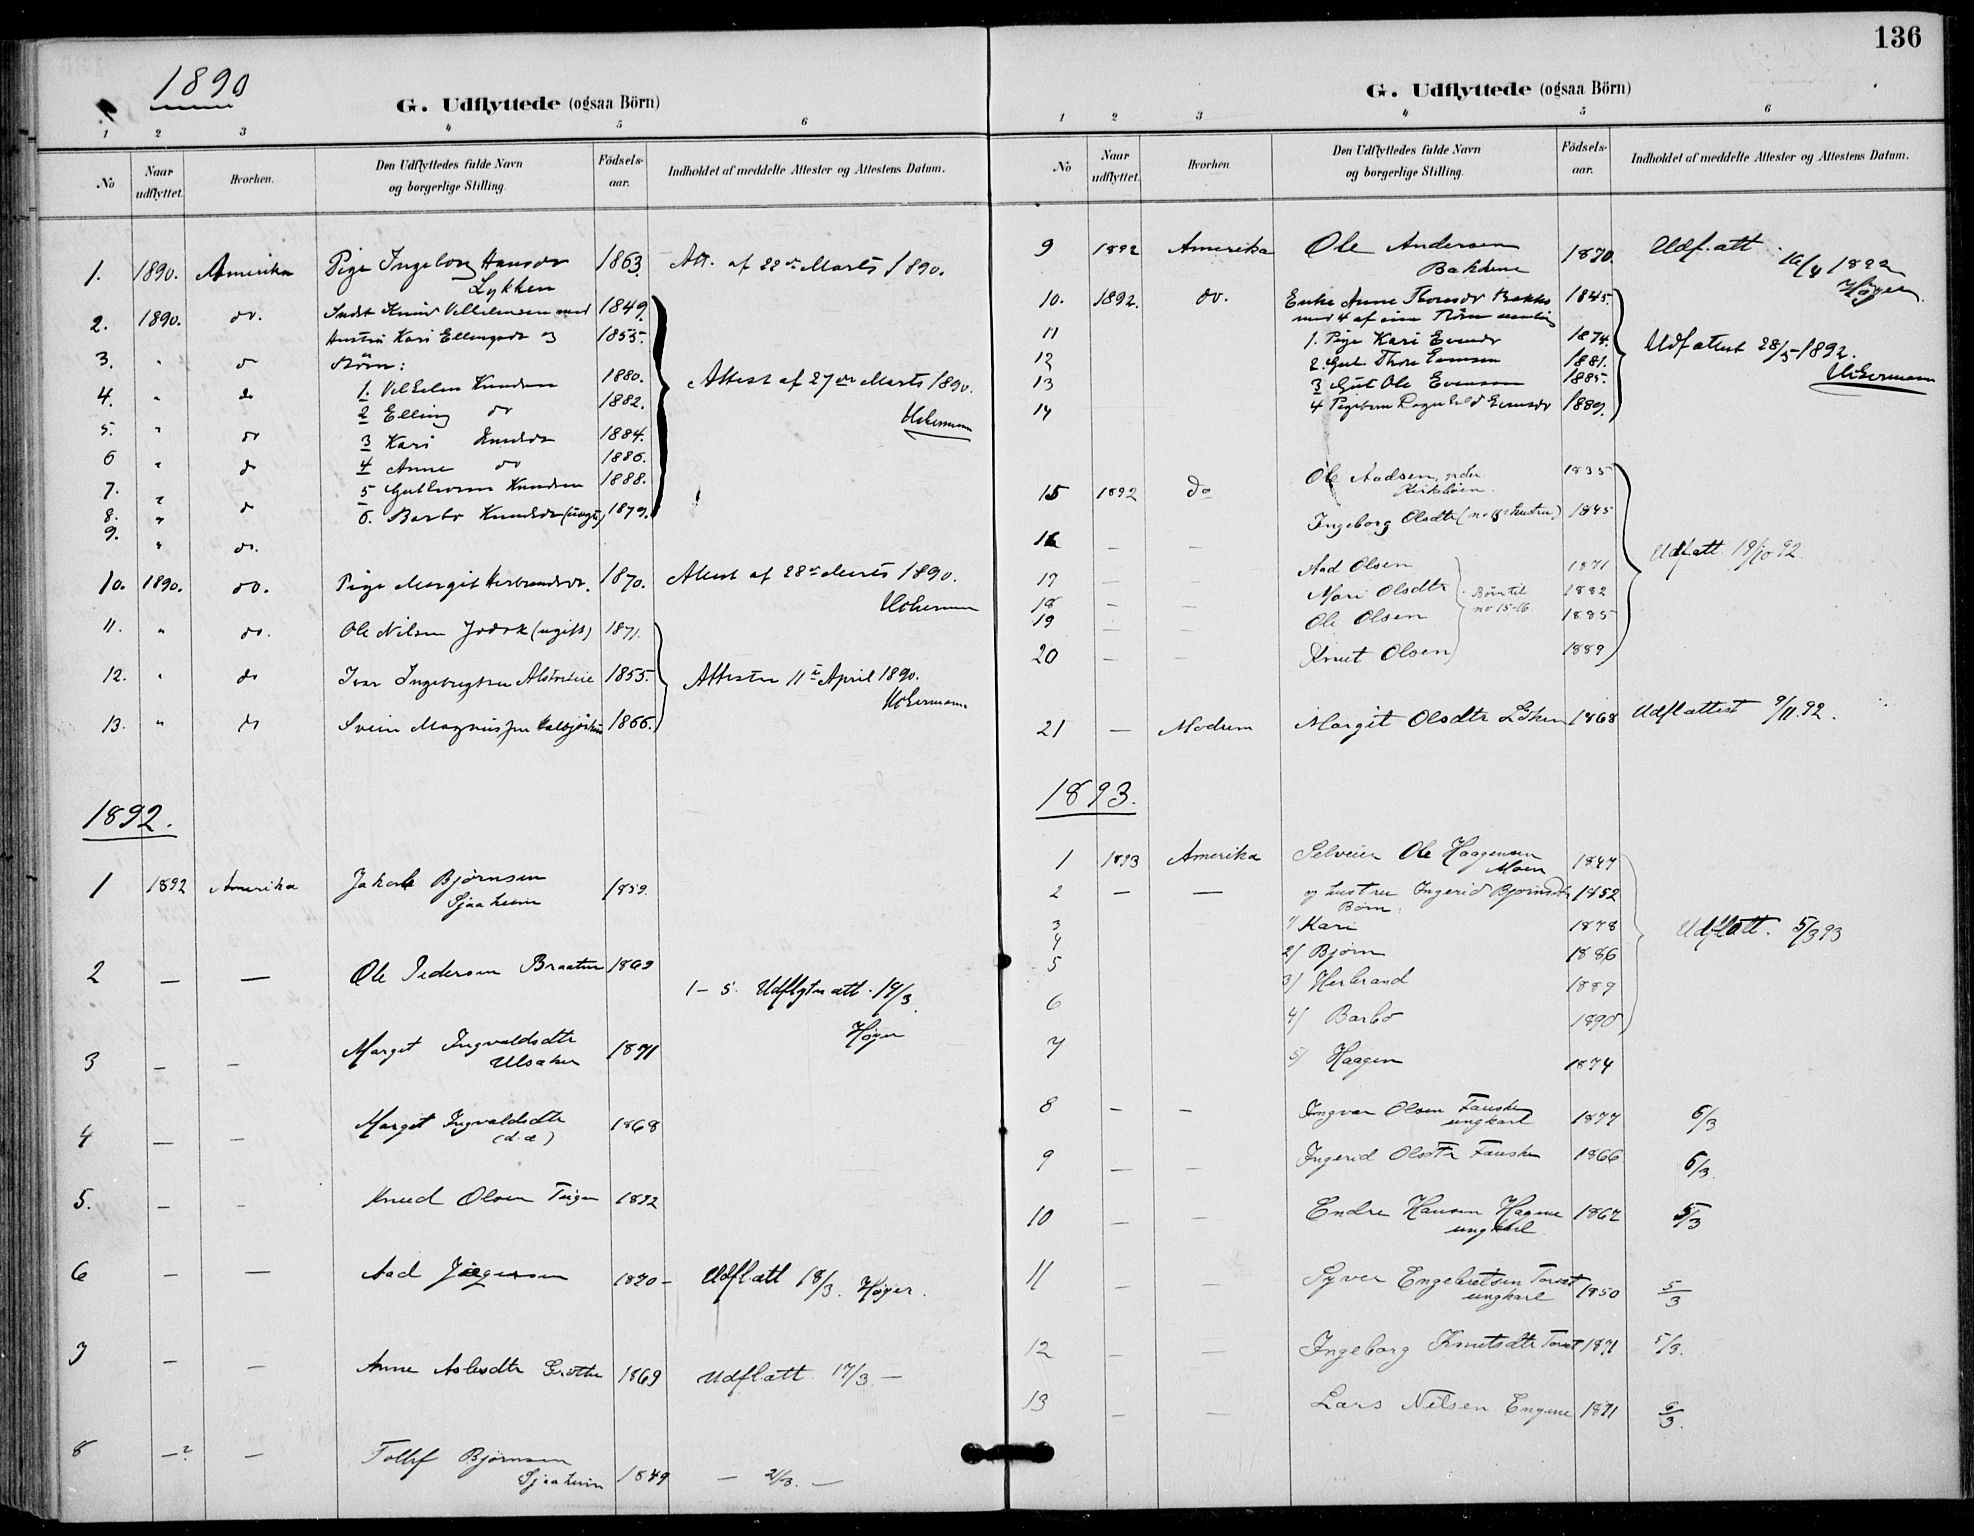 136
1890
G. Udflyttede (ogsaa Börn)
1 2 3 4 5 6
No
Naar udflyttet.
Hvorhen.
Den Udflyttedes fulde Navn og borgerlige Stilling.
Födsels-aar.
Indholdet af meddelte Attester og Attestens Datum.
1. 1890. Amerika Pige Ingeborg Hansdr 1863. Att. af 22de Marts 1890.
Lykken
2. 1890. do. Knud Vilhelmsen med 1849.
3. " do Hustru Kari Ellingsdr og 1855.
Börn:
4. " do 1. Vilhelm Knudsen 1880. Attest af 27de Marts 1890.
5. " do 2 Elling do 1882.
6 " do 3 Kari Knudsdr 1884.
7. " do 4 Anne do 1886.
8. " 5 Guttorm Knudsen 1888.
9. " do. 6. Barbo Knudsdr (ugift) 1879.
10. 1890. do. Pige Margit Herbrandsdr. 1870. Attest af 28de Marts 1890.
11. " do. Ole Nilsen (ugift) 1871.
12. " do Ivar Ingebrigtsen 1855. Attester 11te April 1890.
13. " do Svein Magnussen 1866.
1892.
1 1892 Amerika Jakob Björnsen 1859.
Sjaaheim
2 — — Ole Pedersen Braaten 1869
1–5. Udflytn att. 19/3.
Høyer
3 — — Margit Ingvaldsdtr 1871
Ulsaker
4 — — Margit Ingvaldsdtr 1868
(d.æ)
5. — - Knud Olsen Teigen 1892
6 — — Aad Jørgensen 1870 – Udfl att 18/3. Høyer.
7 — — Anne Aslesdtr Grøtte 1869 Udfl att 17/3 —
8 —? — Tollef Björnsen
Sjaaheim 1849 — 21/3. —
G. Udflyttede (ogsaa Börn)
1 2 3 4 5 6
No
Naar udflyttet.
Hvorhen
Den Udflyttedes fulde Navn og borgerlige Stilling.
Födsels-aar.
Indholdet af meddelte Attester og Attestens Datum.
9 1892 Amerika Ole Andersen 1870. Udf. att. 16/4 1892
Høyer.
10. 1892. do. Enke Anne Thoresdr Bekko 1845.
med 4 af sine Börn nemlig
11 1. Pige Kari Evensdr 1874. Udf attest 28/5 1892.
12 2. Gut Thore Evensen 1881.
13 3 Gut Ole Evensen 1885.
14 4 Pigebarn Ragnhild Evensdr 1889.
15 1892 do Ole Aadsen, 1835
Kirkebøen.
16 — — Ingeborg Olsdtr (no 15's hustru) 1845
Udf att. 19/10 92.
17 — Aad Olsen 1871
18 — — Mari Olsdtr 1882
Børn til
no 15-16
19 — — Ole Olsen 1885
20 — — Knut Olsen 1889
21 — Modum Margit Olsdtr Løken 1868 Udfl attest 9/11.92.
1893.
1 1893 Amerika Selveier Ole Haagensen 1847
Moen
2 — — og hustru Ingerid Bjørnsdtr 1852
Børn:
3 1/ Kari 1878 Udfl att. 5/3 93
4 2/ Bjørn 1886
5 3/ Herbrand 1889
6 4/ Barbo 1890
7 5/ Haagen 1874
8 — — Ingvar Olsen Fauske 1877 6/3
ungkarl
9 — — Ingerid Olsdtr Fauske 1866 6/3.
10 — — Endre Hansen Hagene 1867 5/3
ungkarl
11 — — Syver Engebretsen 1850 5/3
ungkarl
12 — — Ingeborg Knutsdtr 1871 5/3.
13 — — Lars Nilsen Engene 1871 6/3.